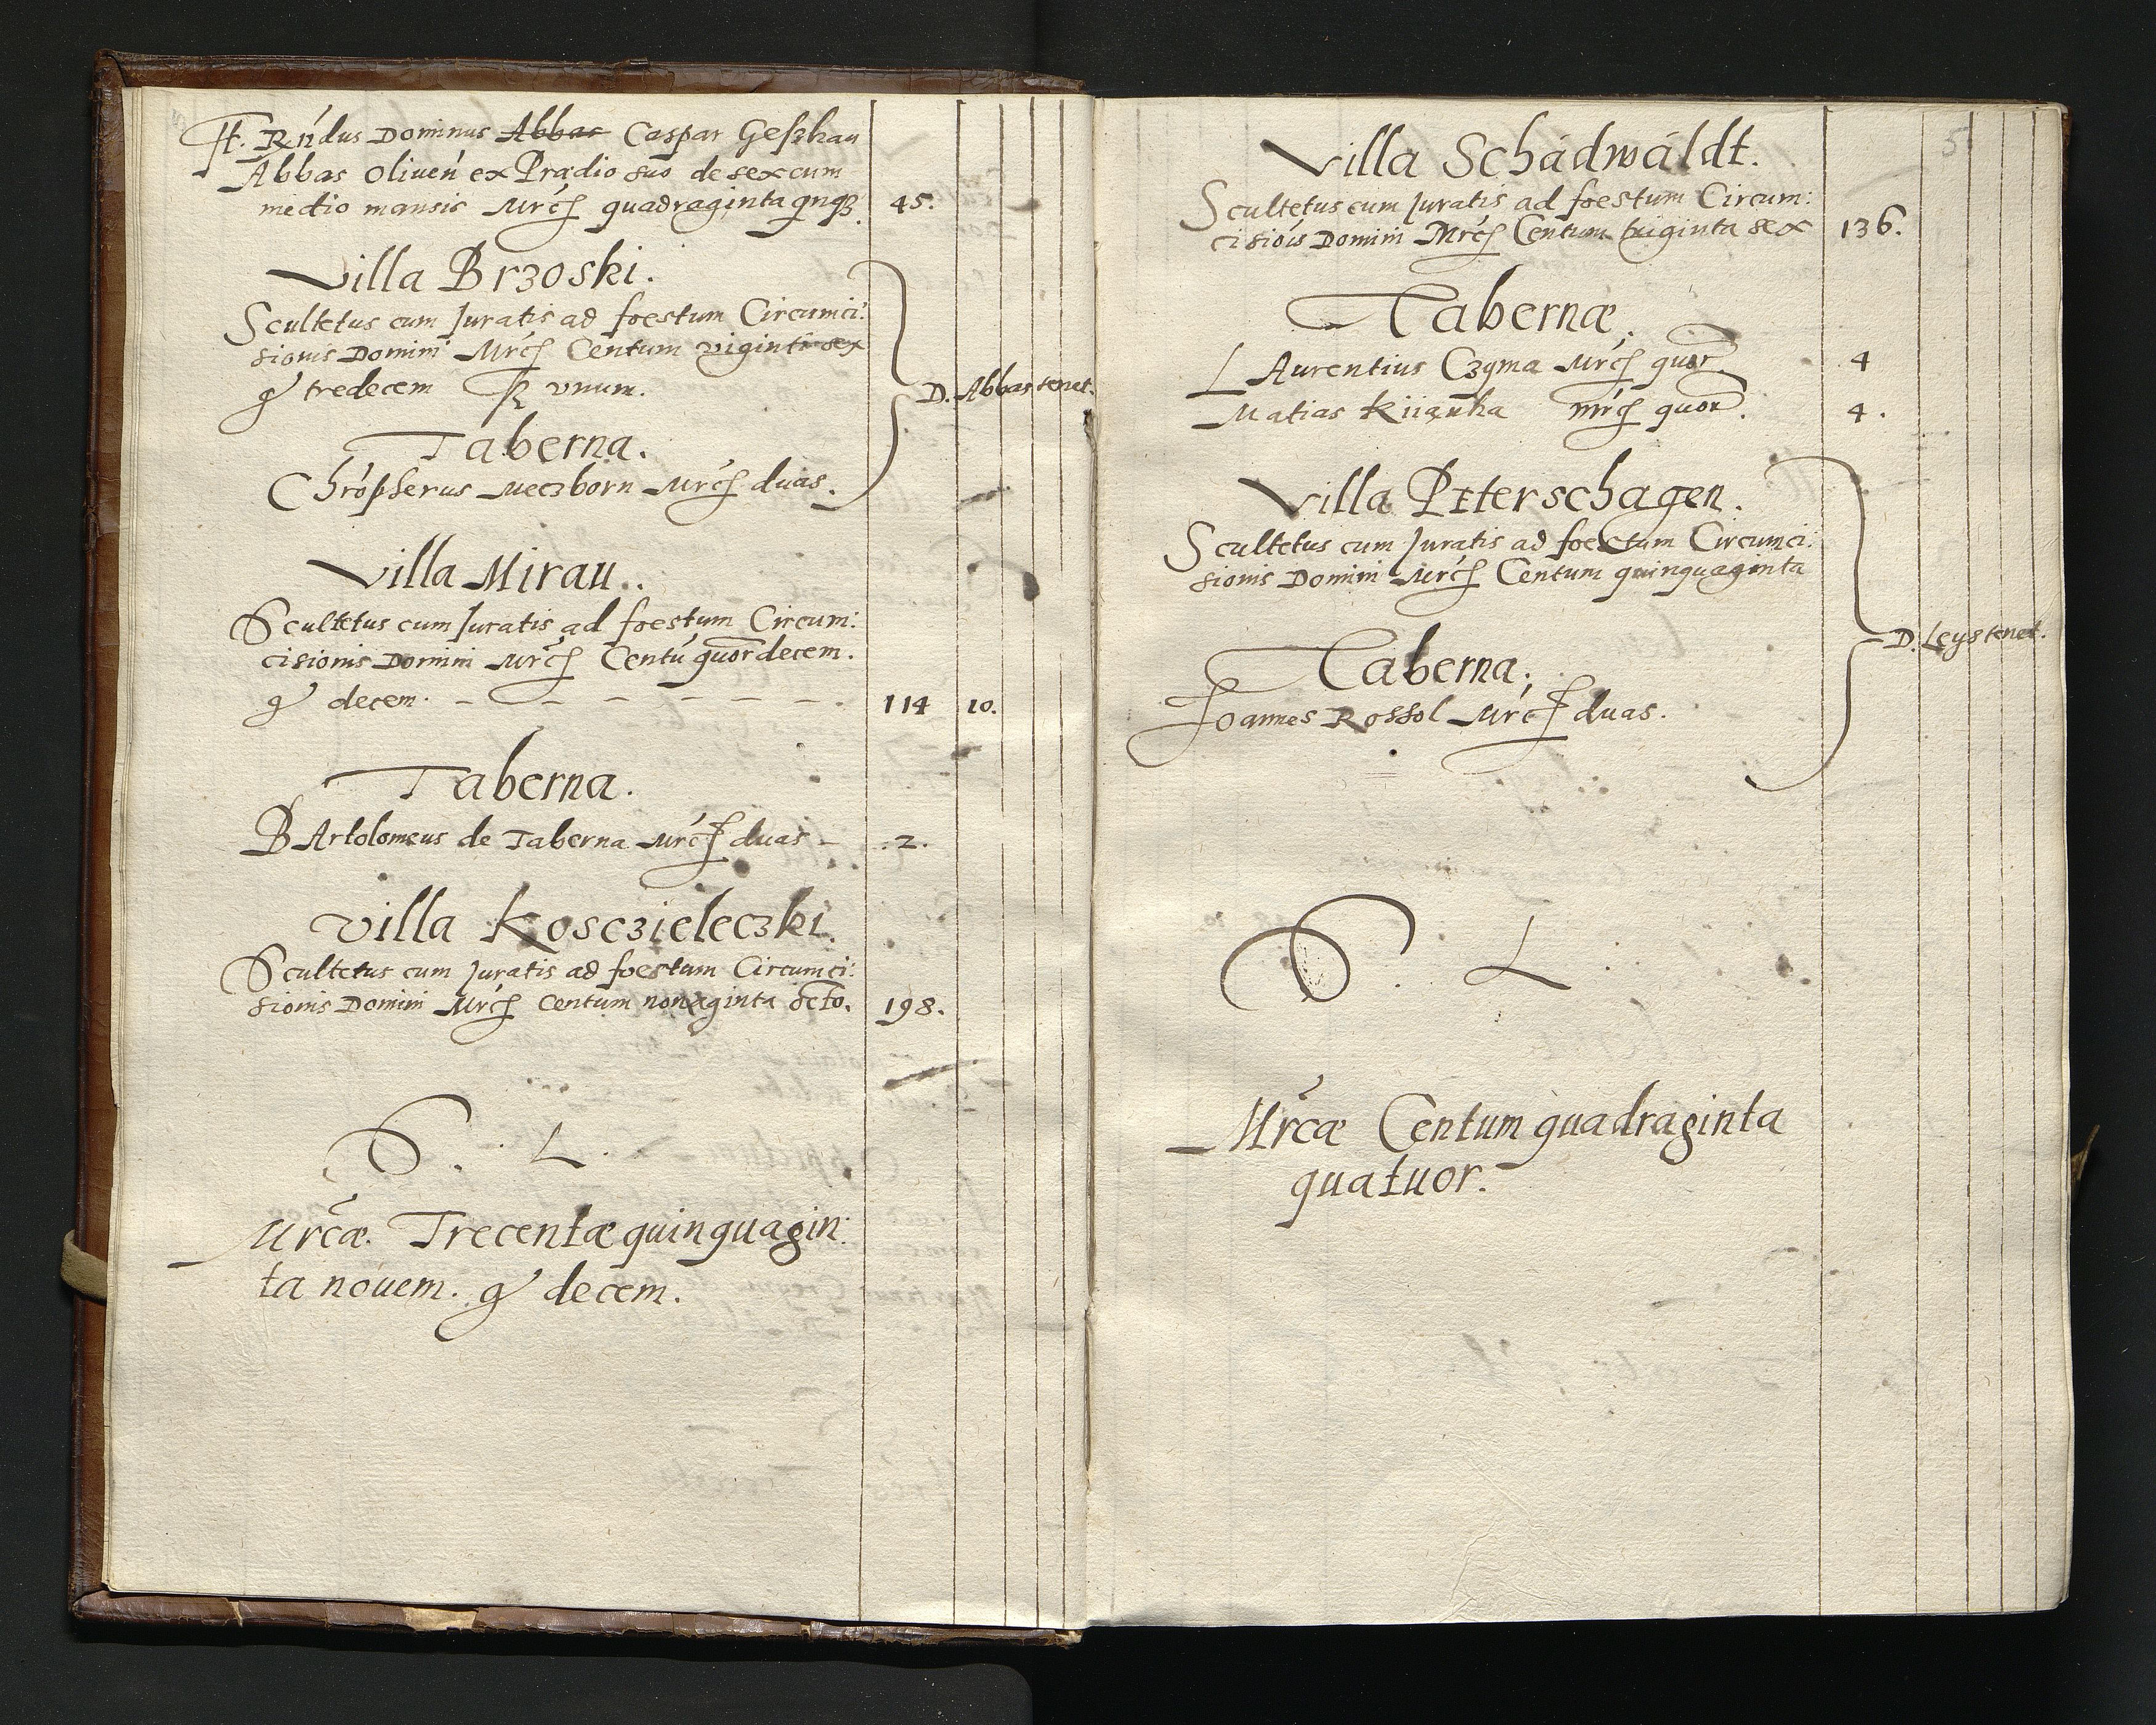 It. Rńdus Dominus Abbas Caspar Geschkau
Abbas Oliueń ex Prædio suo de sex cum
medio mansis Mrc̃ quadraginta qnqȝ. 45.
Villa Brzoski.
Scultetus cum Juratis ad foestum Circumci:
sionis Domini Mrc̃ Centum viginti sex
g tredecem ß vnum.
D. Abbas tenet.
Taberna.
Chrõpherus Meczborn Mrc̃ duas.
Villa Mirau.
Scultetus cum Juratis ad foestum Circum:
cisionis Domini Mrc̃ Centũ quor̃decem.
g decem. - - - - - - 114 10.
Taberna.
BArtolomeus de Taberna Mrc̃ duas - .2.
Villa Kosczieleczki.
Scultetus cum Juratis ad foestum Circumci:
sionis Domini Mrc̃ Centum nonaginta octo. 198.
S. L.
Mrcæ. Trecentæ quinquagin:
ta nouem. g decem.
5
Villa Schädwäldt.
Scultetus cum Juratis ad foestum Circum:
cisiois Domini Mrc̃ Centum triginta sex 136.
Tabernæ.
LAurentius Czyma Mrc̃ quor̃. 4
Matias Kiianka mrc̃ quor̃. 4.
Villa Peterschagen.
Scultetus cum Juratis ad foestum Circumci:
sionis Domini Mrc̃ Centum quinquaginta
D. Leys tenet.
Taberna.
Joannes Rossol Mrc̃ duas.
S. L.
Mrcæ Centum quadraginta
quatuor.